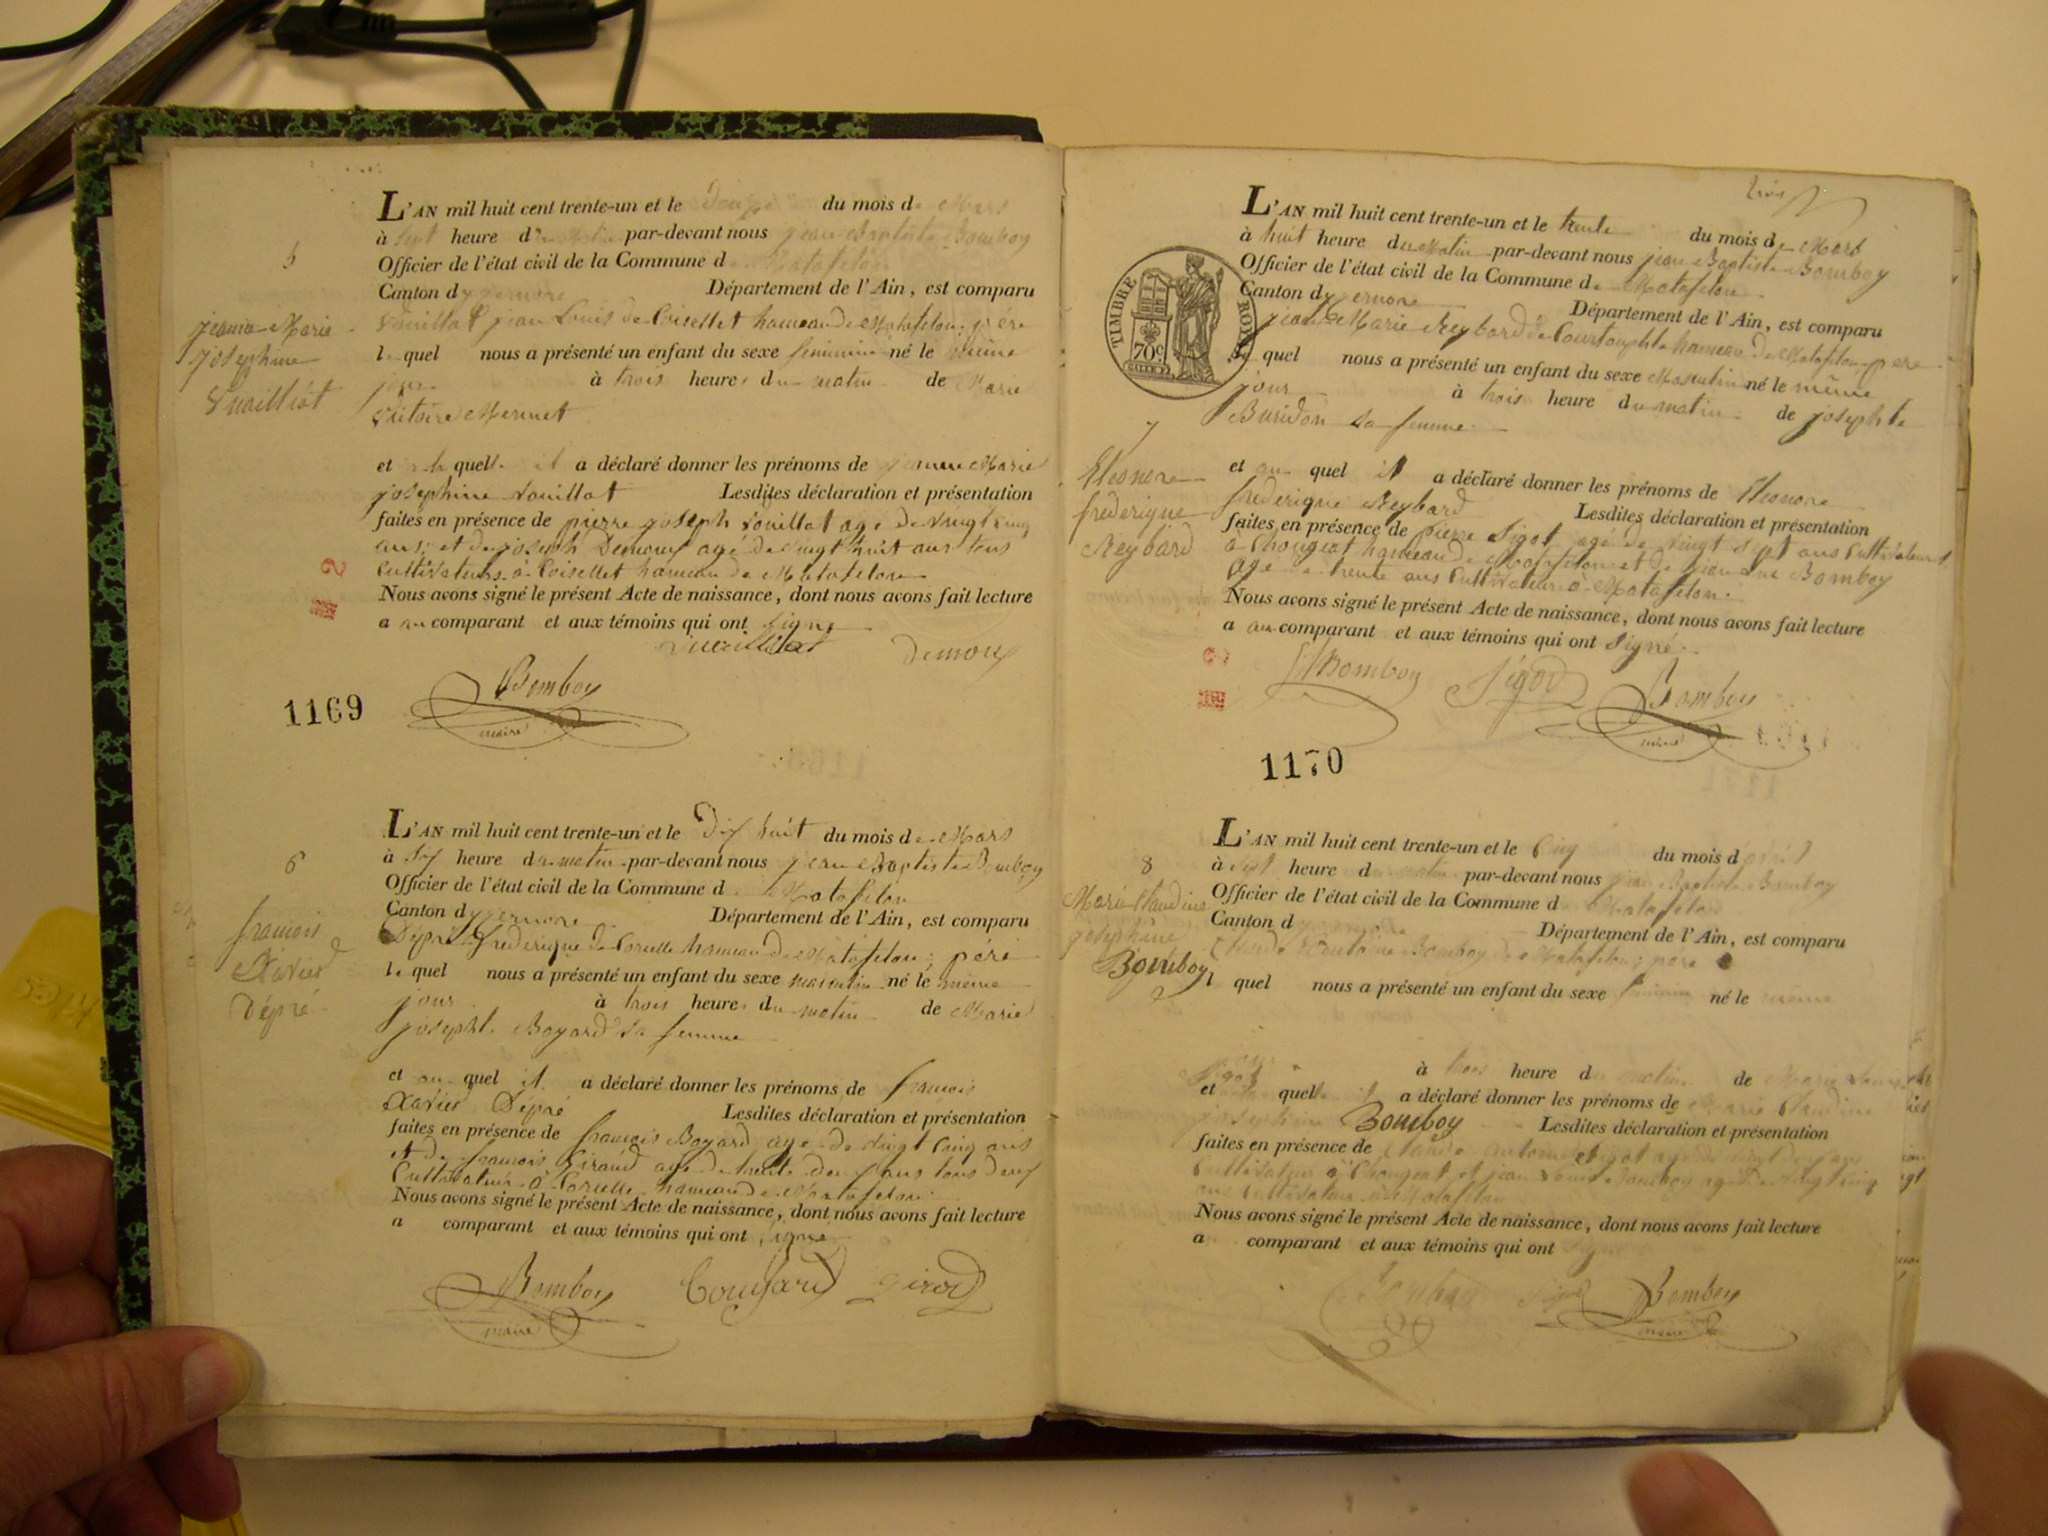 5
jeanne Marie
josephine
Vuilliat
L'AN mil huit cent trente-un et le Douze du mois de Mars
à Sept heure du matin par-devant nous jean Baptiste Bomboy
Officier de l'état civil de la Commune de Matafelon
Canton d'ysernore Département de l'Ain, est comparu
Vouillat jean Louis de Coisellet hameau de Matafelon, père
le quel nous a présenté un enfant du sexe feminin né le même
jour à trois heures du matin de Marie
Victoire Mermet
et a la quelle il a déclaré donner les prénoms de jeanne Marie
josephine Vouillat Lesdites déclaration et présentation
faites en présence de pierre joseph Vouillat agé de vingt cinq
ans, et de joseph Demoux agé de vingt huit ans tous
Cultivateurs à Coisellet hameau de Matafelon
Nous avons signé le présent Acte de naissance, dont nous avons fait lecture
a au comparant et aux témoins qui ont signé
Vuailliat Demoux
Bomboy
maire
1169
2
6
francois
Xavier
Dépré
L'AN mil huit cent trente-un et le Dix huit du mois de Mars
à six heure du matin par-devant nous jean Baptiste Bomboy
Officier de l'état civil de la Commune de Matafelon
Canton d'ysernore Département de l'Ain, est comparu
Dépré frederique de Corcelle hameau de Matafelon, père
le quel nous a présenté un enfant du sexe masculin né le même
jour à trois heures du matin de Marie
josephte Boyard sa femme
et au quel il a déclaré donner les prénoms de francois
Xavier Dépré Lesdites déclaration et présentation
faites en présence de francois Boyard agé de vingt cinq ans
et de francois Giraud agé de trente deux ans tous deux
Cultivateur à Corcelle hameau de Matafelon
Nous avons signé le présent Acte de naissance, dont nous avons fait lecture
a comparant et aux témoins qui ont signé
Bomboy
maire
trois
TIMBRE ROYAL
70c
L'AN mil huit cent trente-un et le trente du mois de Mars
à huit heure du Matin par-devant nous jean Baptiste Bomboy
Officier de l'état civil de la Commune de Matafelon
Canton d'ysernore Département de l'Ain, est comparu
jean Marie Reybard de Courtouphle hameau de Matafelon, père
le quel nous a présenté un enfant du sexe Masculin né le même
jour à trois heure du matin de josephte
Buridon sa femme
7
Eleonore
frederique
Reybard
et au quel il a déclaré donner les prénoms de Eleonore
frederique Reybard Lesdites déclaration et présentation
faites en présence de pierre Sigot agé de vingt sept ans Cultivateur
à Chougeat hameau de Matafelon et de jean Bomboy
agé de trente ans Cultivateur à Matafelon
Nous avons signé le présent Acte de naissance, dont nous avons fait lecture
a au comparant et aux témoins qui ont signé
Bomboy Sigod Bomboy
maire
1170
8
Marie Claudine
josephine
Bomboy
L'AN mil huit cent trente-un et le Cinq du mois d'avril
à sept heure du matin par-devant nous jean Baptiste Bomboy
Officier de l'état civil de la Commune de Matafelon
Canton d'ysernore Département de l'Ain, est comparu
Claude Antoine Bomboy de Matafelon, père
l quel nous a présenté un enfant du sexe feminin né le même
jour à trois heure du matin de Marie
Sigot
et quelle il a déclaré donner les prénoms de Marie Claudine
josephine Bomboy Lesdites déclaration et présentation
faites en présence de Claude antoine Sigot agé de vingt deux ans
Cultivateur à Chougeat et jean Bomboy agé de vingt cinq
ans Cultivateur à Matafelon
Nous avons signé le présent Acte de naissance, dont nous avons fait lecture
a comparant et aux témoins qui ont signé
Bomboy Sigod Bomboy
maire